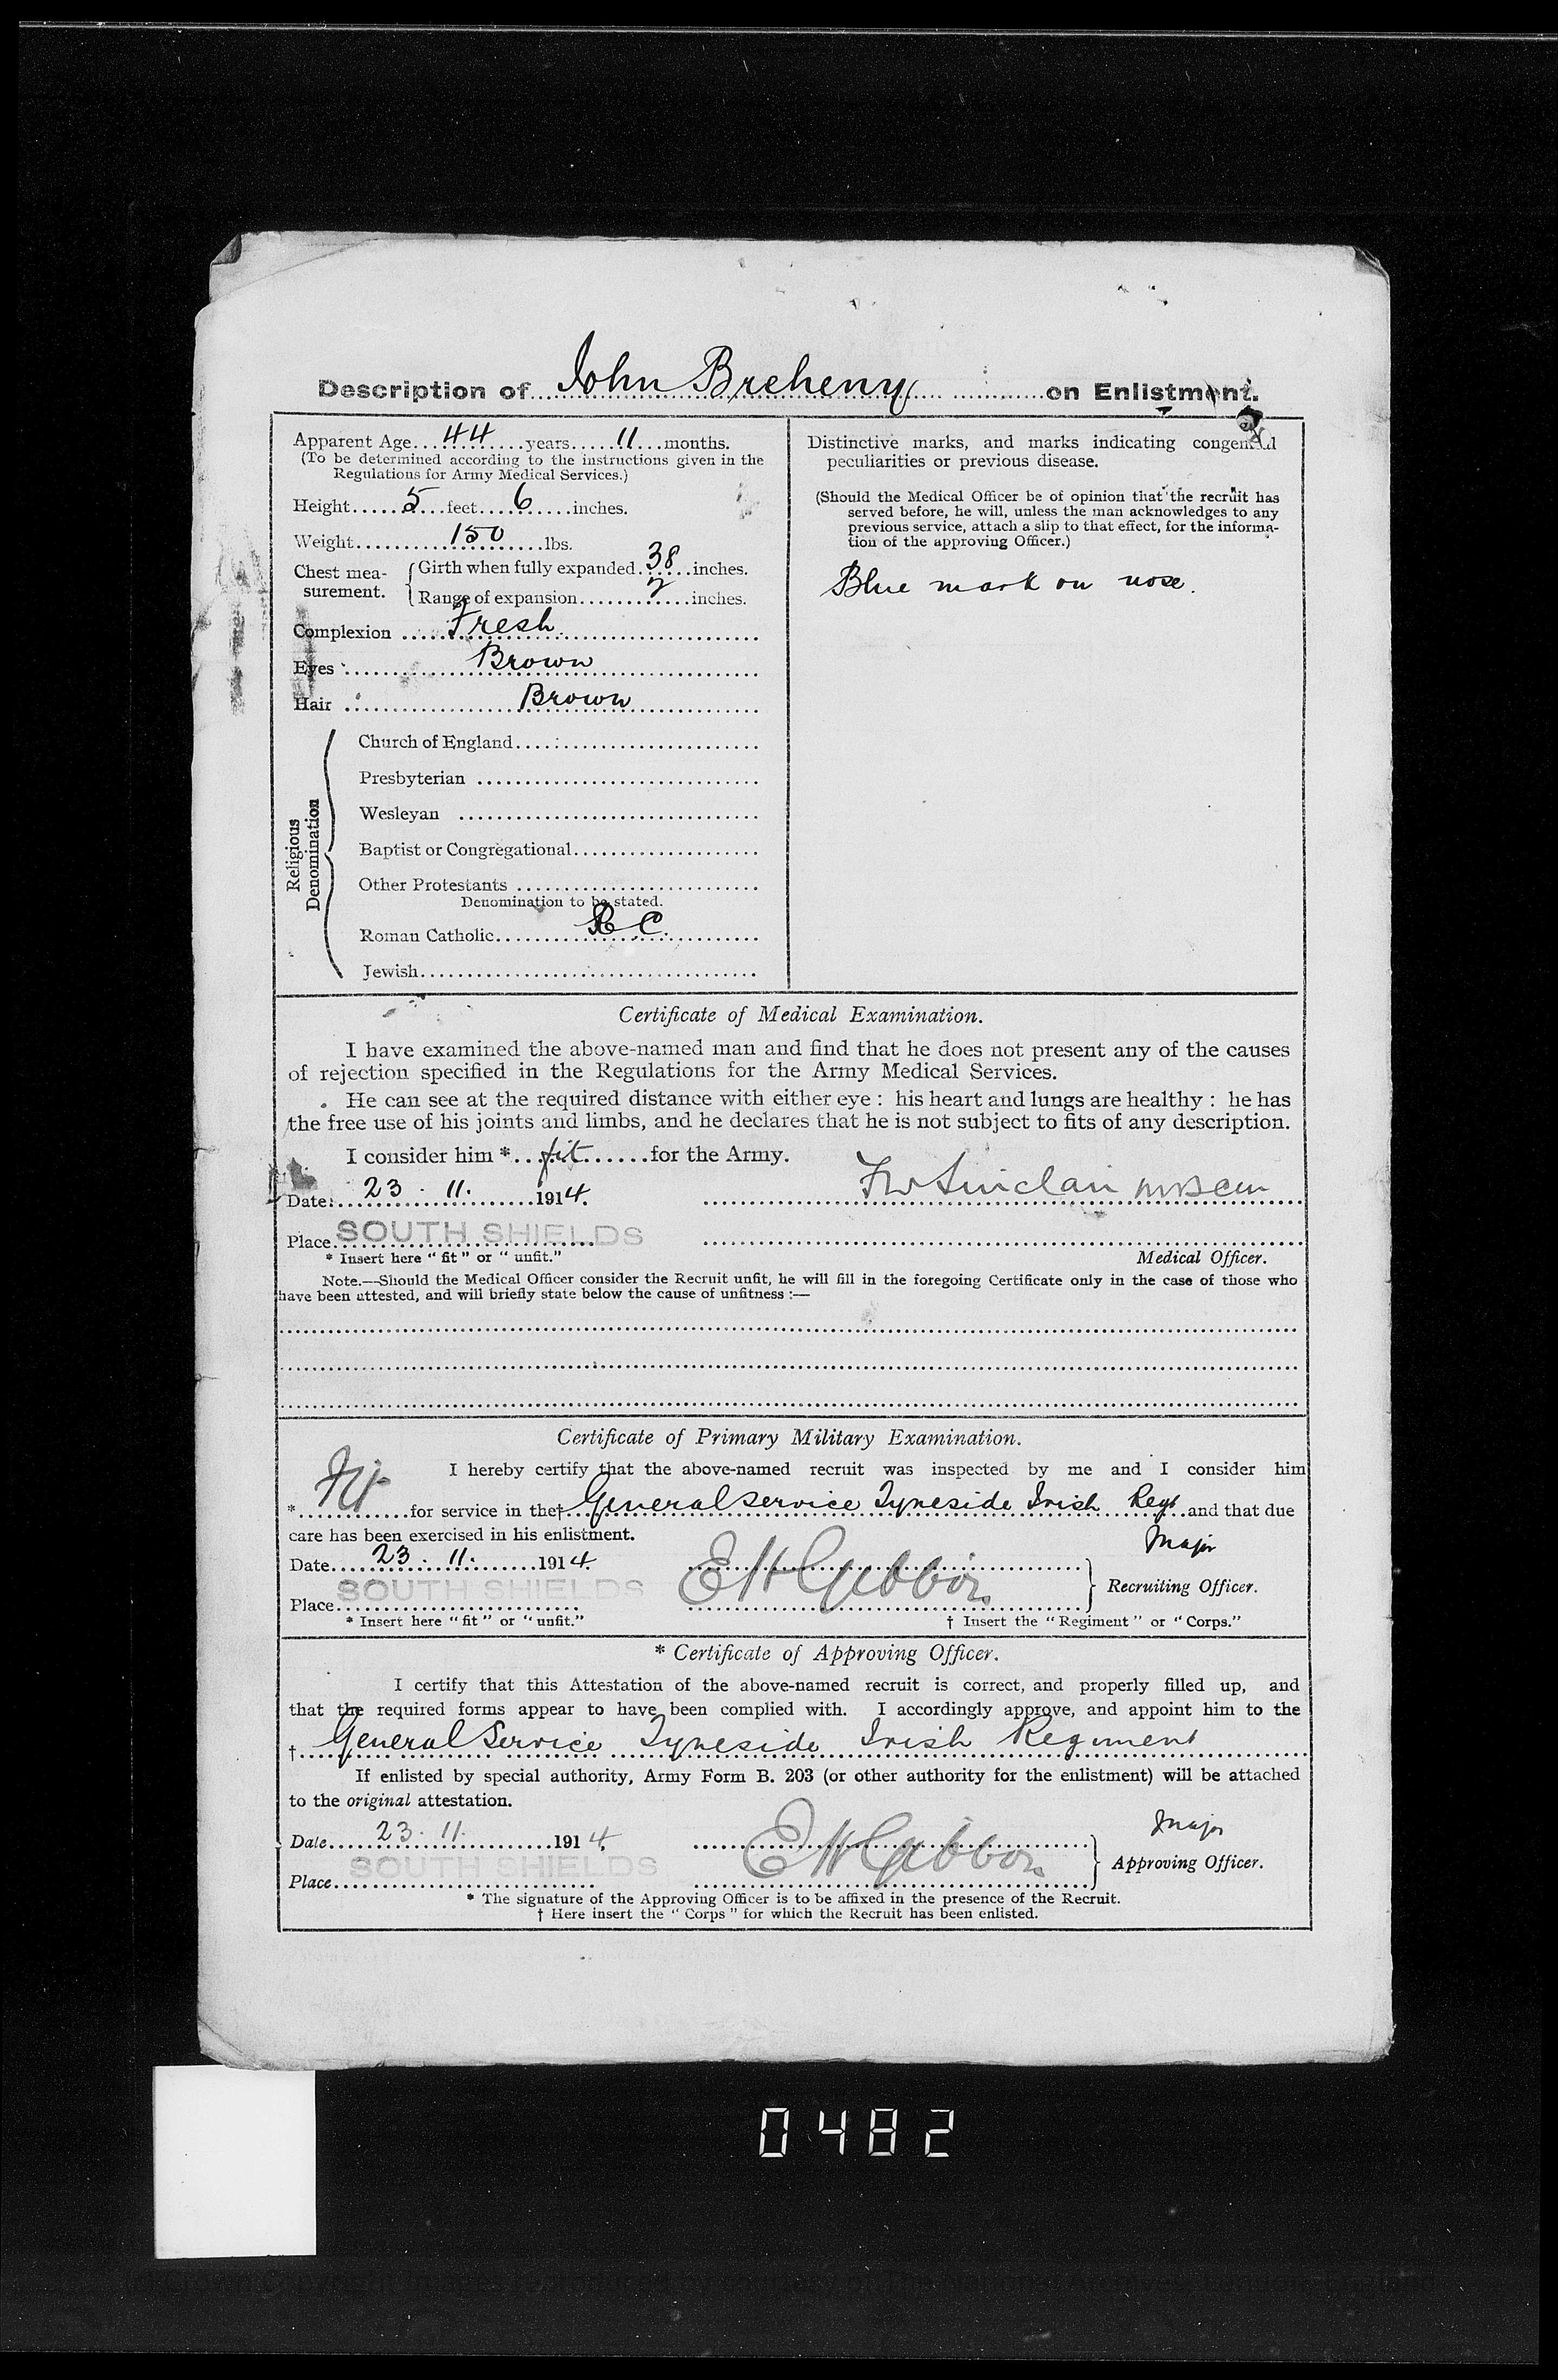 Description of John Breheny on Enlistment.
Apparent Age 44 years 11 months.
(To be determined according to the instructions given in the
Regulations for Army Medical Services.)
Height 5 feet 6 inches.
Weight 150 lbs.
Chest mea-
surement.
Girth when fully expanded 38 inches.
Range of expansion 2 inches.
Complexion Fresh
Eyes Brown
Hair Brown
Religious
Denomination
Church of England
Presbyterian
Wesleyan
Baptist or Congregational
Other Protestants
Denomination to be stated.
Roman Catholic R C.
Jewish
Distinctive marks, and marks indicating congenital
peculiarities or previous disease.
(Should the Medical Officer be of opinion that the recruit has
served before, he will, unless the man acknowledges to any
previous service, attach a slip to that effect, for the informa-
tion of the approving Officer.)
Blue mark on nose.
Certificate of Medical Examination.
I have examined the above-named man and find that he does not present any of the causes
of rejection specified in the Regulations for the Army Medical Services.
He can see at the required distance with either eye : his heart and lungs are healthy : he has
the free use of his joints and limbs, and he declares that he is not subject to fits of any description.
I consider him * fit for the Army.
Date 23. 11. 1914. Sinclair
Place SOUTH SHIELDS
* Insert here "fit" or "unfit."
Medical Officer.
Note.—Should the Medical Officer consider the Recruit unfit, he will fill in the foregoing Certificate only in the case of those who
have been attested, and will briefly state below the cause of unfitness :—
Certificate of Primary Military Examination.
I hereby certify that the above-named recruit was inspected by me and I consider him
* Fit for service in the† General Service Tyneside Irish Regt and that due
care has been exercised in his enlistment.
Major
Date 23. 11. 1914. E H Gibbon
Recruiting Officer.
Place SOUTH SHIELDS
* Insert here "fit" or "unfit."
† Insert the "Regiment" or "Corps."
* Certificate of Approving Officer.
I certify that this Attestation of the above-named recruit is correct, and properly filled up, and
that the required forms appear to have been complied with. I accordingly approve, and appoint him to the
† General Service Tyneside Irish Regiment
If enlisted by special authority, Army Form B. 203 (or other authority for the enlistment) will be attached
to the original attestation.
Major
Date 23. 11. 1914. E H Gibbon
Approving Officer.
Place SOUTH SHIELDS
* The signature of the Approving Officer is to be affixed in the presence of the Recruit.
† Here insert the "Corps" for which the Recruit has been enlisted.
0482